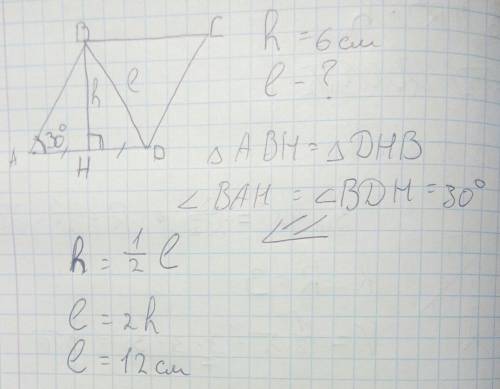 B C
h l
A 30° H D
h = 6 см
l - ?
△ ABH = △ DHB
∠ BAH = ∠ BDH = 30°
h = 1/2 l
l = 2h
l = 12 см